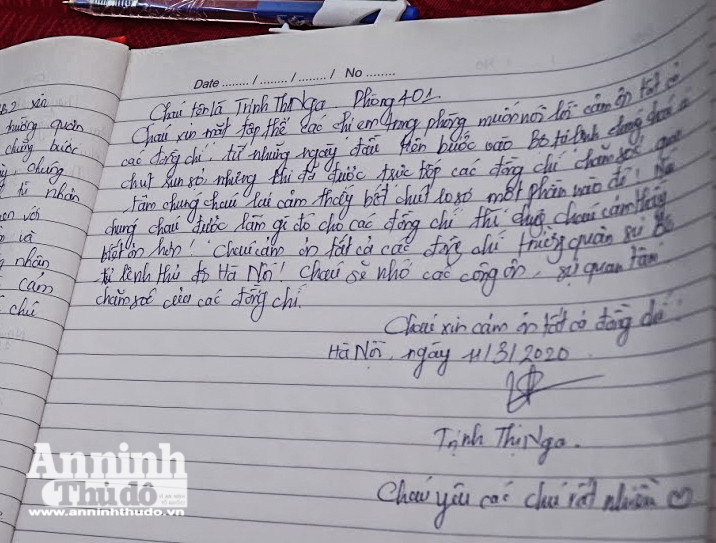 Date ........ / ........ / ........ / No ........
Cháu tên là Trịnh Thị Nga. Phòng 401.
Cháu xin mặt tập thể các chị em trong phòng muốn nói lời cảm ơn tất cả
các đồng chí, từ những ngày đầu tiên bước vào Bộ tư lệnh chúng cháu có
chút sun sợ, nhưng khi đã được trực tiếp các đồng chí chăm sóc, quan
tâm chúng cháu lại cảm thấy bớt chút lo sợ một phần nào đó! Nếu
chúng cháu được làm gì đó cho các đồng chí thì chúng cháu cảm thấy
biết ơn hơn! Cháu cảm ơn tất cả các đồng chí trường quân sự Bộ
tư lệnh thủ đô Hà Nội! Cháu sẽ nhớ các công ơn, sự quan tâm
chăm sóc của các đồng chí.
Cháu xin cảm ơn tất cả đồng chí!
Hà Nội, ngày 11/3/2020
Trịnh Thị Nga.
Cháu yêu các chú rất nhiều ♡
xin
trường quân
chúng bước
chúng
tư nhân
với
và
nhân
cảm
chú
An ninh
Thủ đô
www.anninhthudo.vn